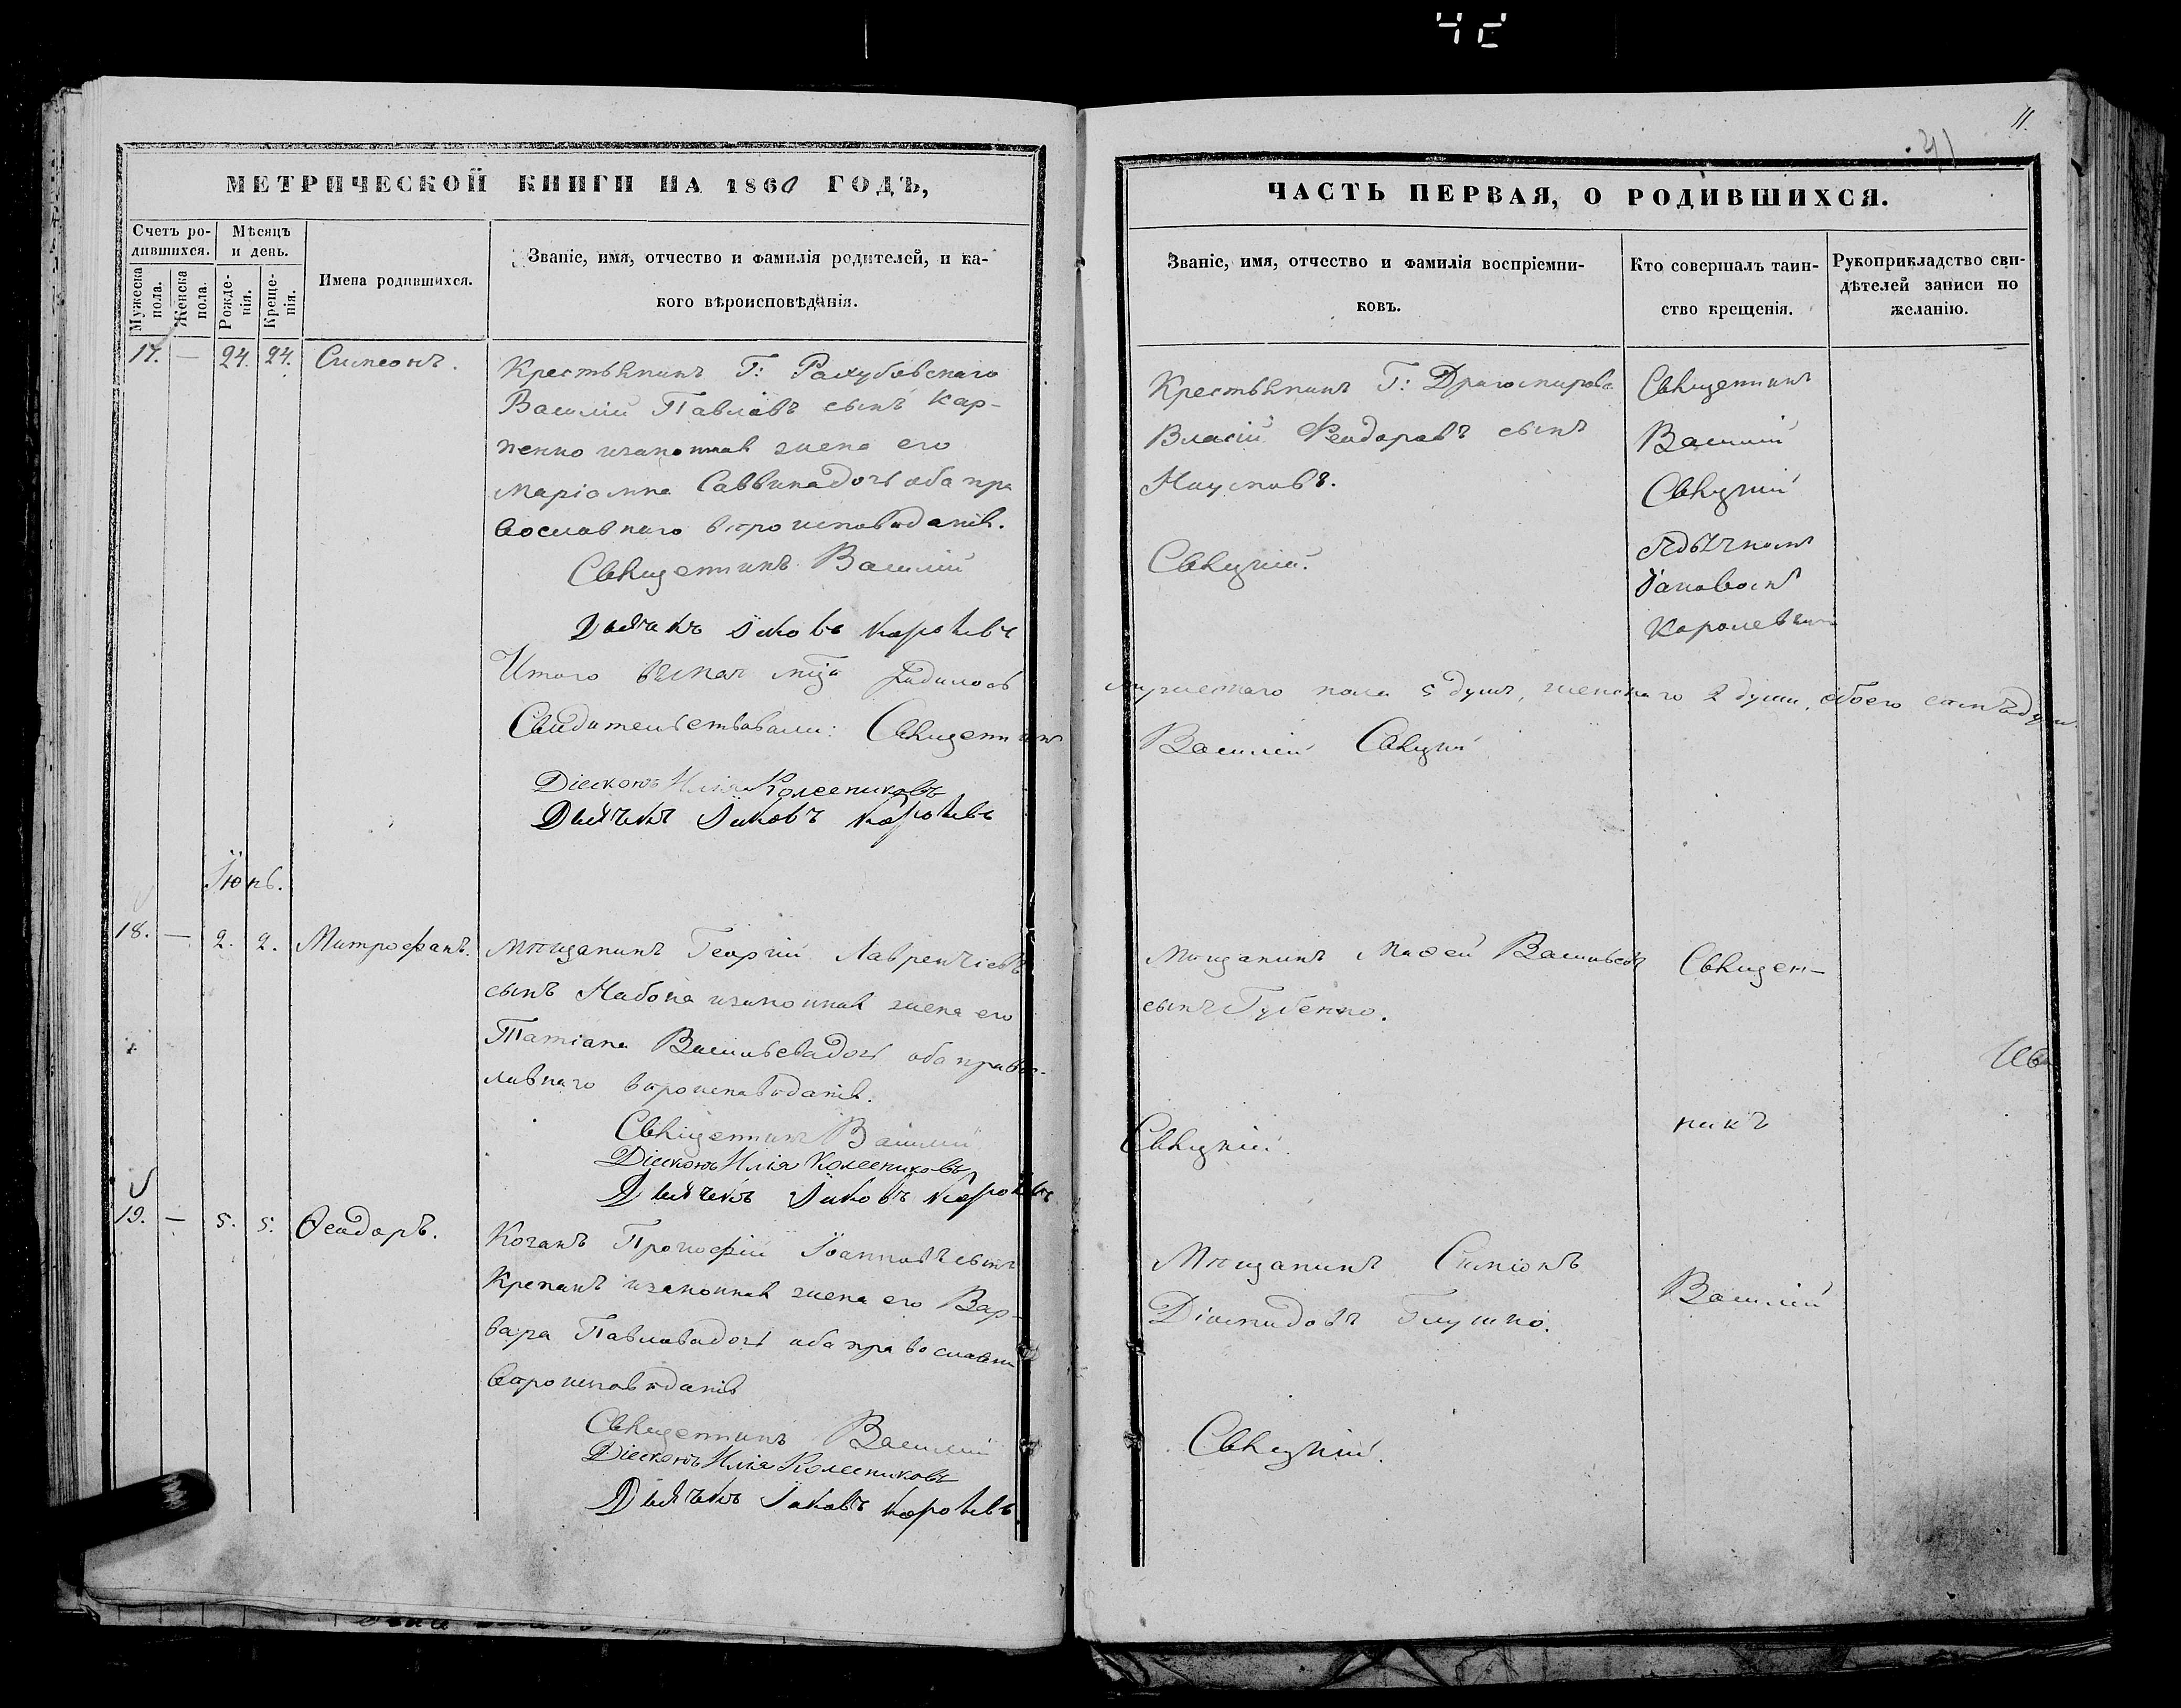 42
11.
41
МЕТРИЧЕСКОЙ КНИГИ НА 1860 ГОДЪ,
Счетъ ро-
дившихся.
Мужеска
пола.
Женска
пола.
Мѣсяцъ
и день.
Рожде-
нія.
Креще-
нія.
Имена родившихся.
Званіе, имя, отчество и фамилія родителей, и ка-
кого вѣроисповѣданія.
17. — 24. 24. Симеонъ.
Крестьянинъ Г:
Василій Павловъ сынъ Кар-
пенко изаконная жена его
Маріамна Саввинадочь оба пра
вославнаго вѣроисповѣданія.
Священникъ Василій
Дьячекъ Іаковъ
Итого вмаѣ мцѣ родилось
Свидѣтельствовали: Священникъ
Діаконъ Илія Колесниковъ
Дьячекъ Іаковъ
Іюнь.
18. — 2. 2. Митрофанъ.
Мѣщанинъ Георгій Лаврентіевъ
сынъ Набока изаконная жена его
Татіана Васильевадочь оба правос-
лавнаго вѣроисповѣданія.
Священникъ Василій
Діаконъ Илія Колесниковъ
Дьячекъ Іаковъ
19. — 5. 5. Ѳеодоръ.
Прокофій Іоанновъ сынъ
изаконная жена его Вар-
вара Павловадочь оба православн
вѣроисповѣданія
Священникъ Василій
Діаконъ Илія Колесниковъ
Дьячекъ Іаковъ
ЧАСТЬ ПЕРВАЯ, О РОДИВШИХСЯ.
Званіе, имя, отчество и фамилія воспріемни-
ковъ.
Кто совершалъ таин-
ство крещенія.
Рукоприкладство сви-
дѣтелей записи по
желанію.
Крестьянинъ Г:
Власій Феодоровъ сынъ
Наумовъ.
Свяцкій.
Священникъ
Василій
Свяцкій
мужескаго пола 5 душъ, женскаго 2 души, обоего
Василій Свяцкій
Мѣщанинъ Васильевъ
сынъ Губенко.
Свяцкій.
Священ-
никъ
Мѣщанинъ Симіонъ
Глушко.
Свяцкій.
Василій